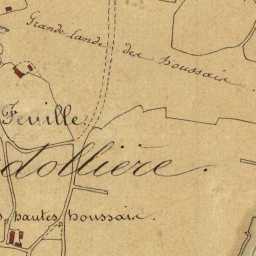 Grande lande des houssaix
Feville
dollière.
s hautes houssaix.